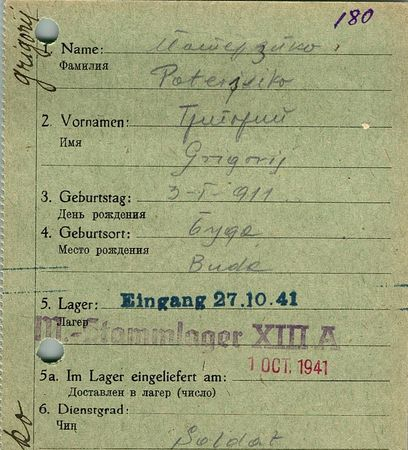 180
grigory
1. Name:
Фамилия
2. Vornamen: Григорий
Имя
Grigorij
3. Geburtstag: 3-I-911
День рождения
4. Geburtsort: Буда
Место рождения
Buda
5. Lager: Eingang 27.10.41
Лагер
M.-Stammlager XIII A
1 OCT. 1941
5a. Im Lager eingeliefert am:
Доставлен в лагер (число)
6. Dienstgrad:
Чин
Soldat
ko